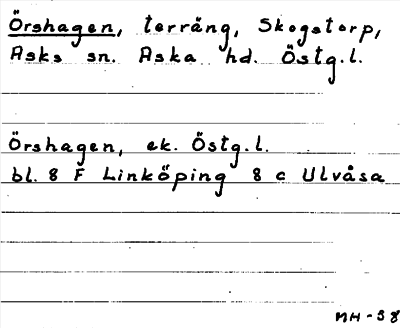 Örshagen, terräng, Skogstorp,
Asks sn. Aska hd. Östg.l.
Örshagen, ek. Östg.l.
bl. 8 F Linköping 8 c Ulvåsa
MH-58